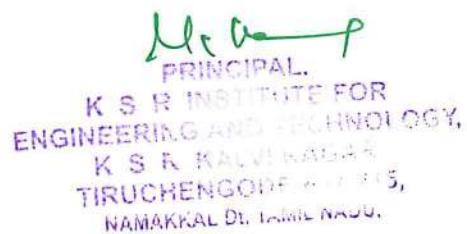 PRINCIPAL.
K S R INSTITUTE FOR
ENGINEERING AND TECHNOLOGY,
K S R KALVI NAGAR
TIRUCHENGODE
NAMAKKAL Dt. TAMIL NADU.